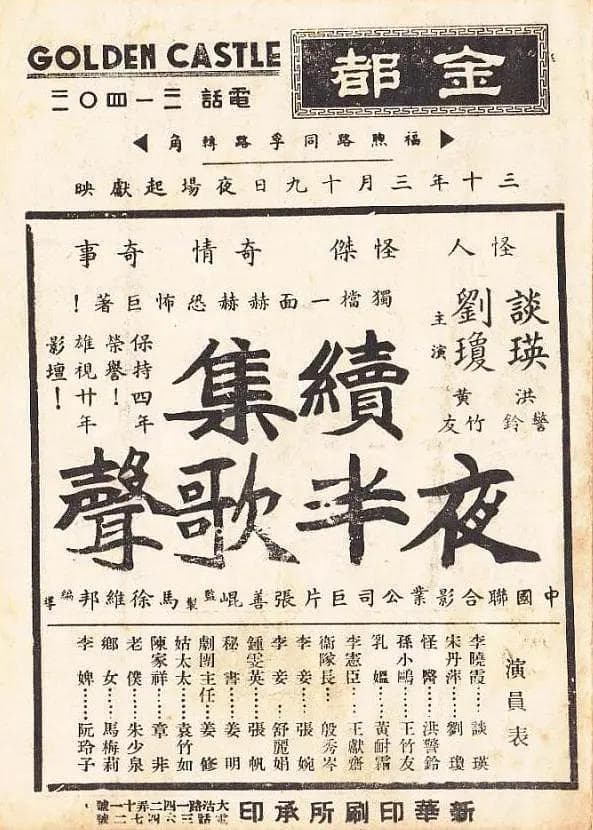 GOLDEN CASTLE
金都
電話
福煦路同孚路轉角
三十年三月十九日夜場起獻映
怪人怪傑奇情奇事
獨檔一面赫赫恐怖巨著!
談瑛
劉瓊
主演
洪警鈴
黃竹友
續集
夜半歌聲
保持四年
榮譽!
雄視廿年
影壇!
中國聯合影業公司巨片張善崐監製馬徐維邦編導
演員表
李曉霞……談瑛
宋丹萍……劉瓊
怪醫……洪警鈴
孫小鷗……王竹友
乳媼……黃耐霜
李憲臣……王獻齋
衛隊長……殷秀岑
李妾……張婉
李妾……舒麗娟
鍾雯英……張帆
秘書……姜明
劇團主任……姜修
姑太太……袁竹如
陳家祥……章非
老僕……朱少泉
鄉女……馬梅莉
李婢……阮玲子
新華印刷所承印
大沽路一四二弄十一號